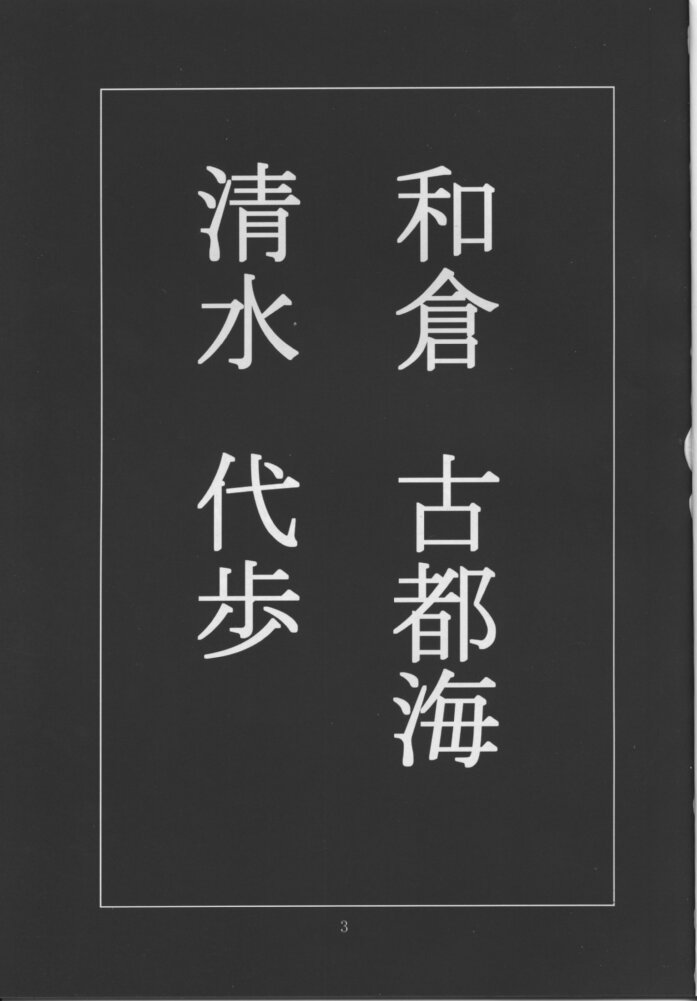 和倉 古都海
清水 代歩
3